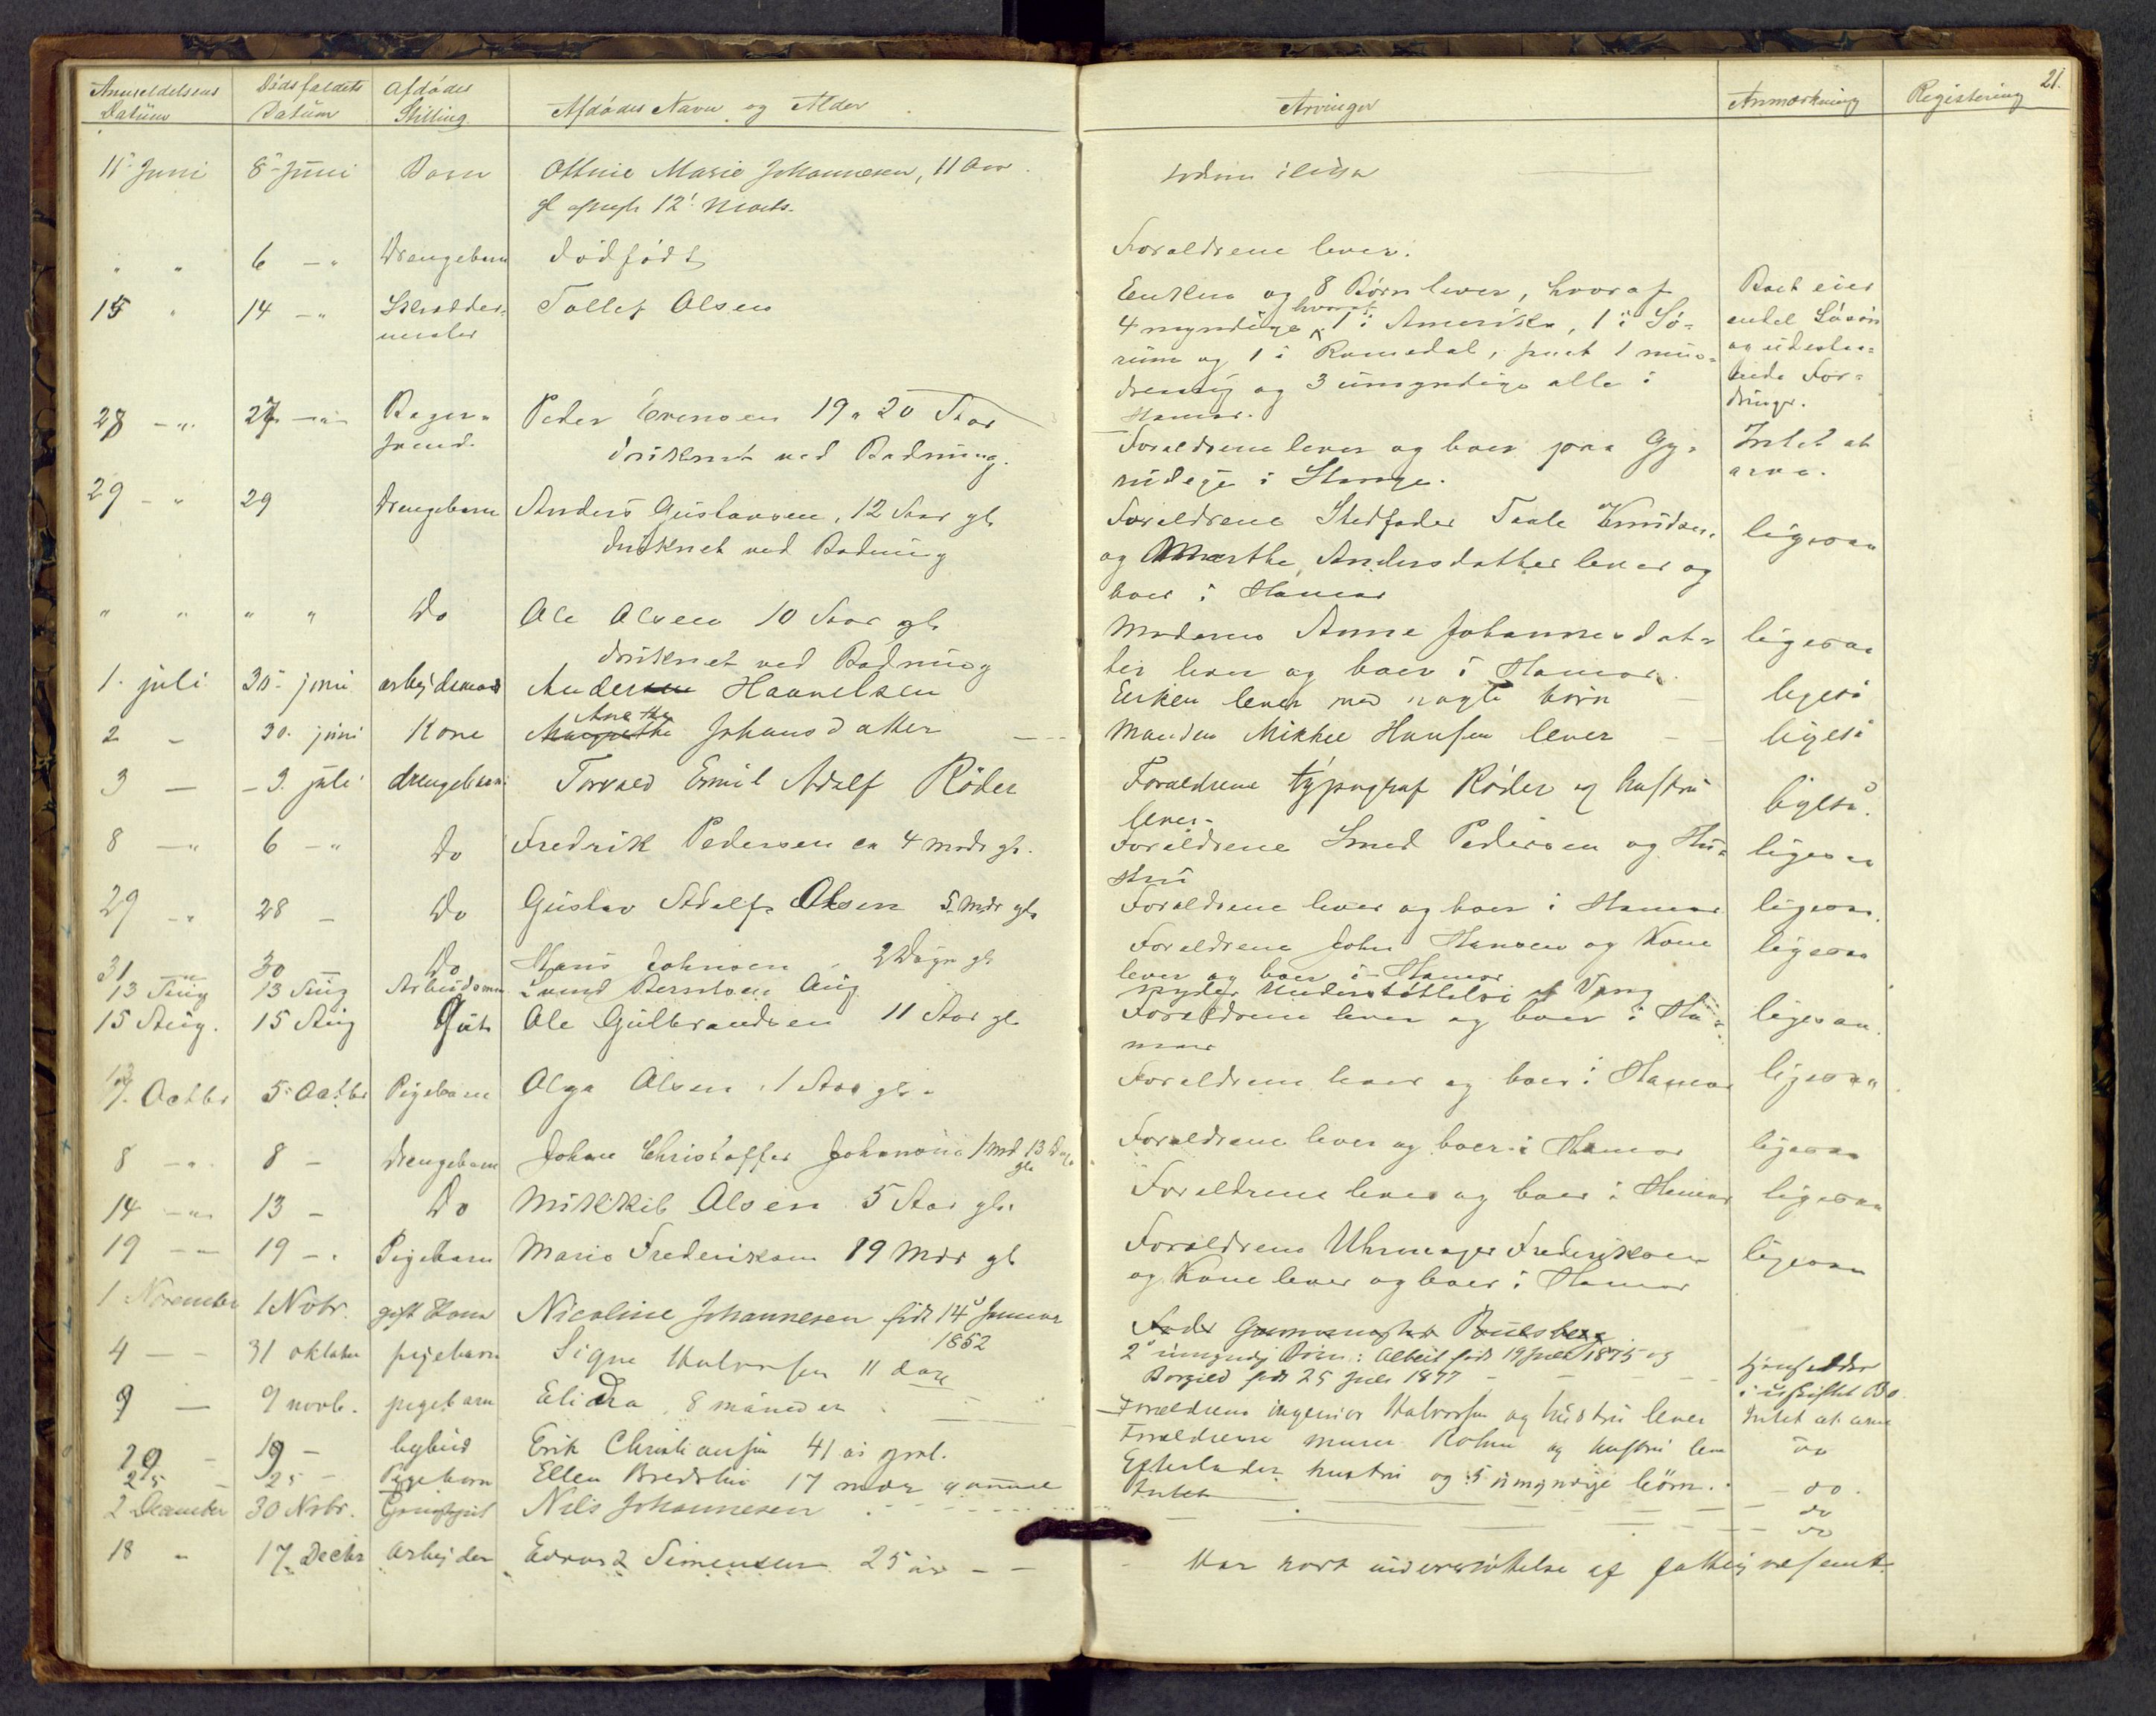 21.
Anmeldelsens Datum | Dødsfaldets Datum | Afdødes Stilling | Afdødes Navn og Alder | Arvinger | Anmærkning | Registering
11 Juni | 8 Juni | Barn | Marie Johannesen, 11 Aar
gl 12 Marts.
" " | 6 — " | Drengebarn | dødfødt | Forældrene lever.
15 " | 14 — " | Skrædder- | Tollef Olsen | Enken og 8 Børn lever, hvoraf | Boet eier
mester | 4 myndige hvoraf 1 i Amerika, 1 i Sø- | endel Løsøre
rum og 1 i Romedal, samt 1 min- | og udestaa-
dreaarig og 3 umyndige alle i | ende For-
Hamar. | dringer.
28 — " | 27 — " | Bager- | Peder Evensen 19 a 20 Aar | Forældrene lever og boer paa Gy- | Intet at
svend. | druknet ved Badning. | i Stange. | arve.
29 — " | 29 | Drengebarn | Anders Gustavsen, 12 Aar gl. | Forældrene Stedfader Taale Knudsen | ligesaa
druknet ved Badning | og Marthe Andersdatter lever og
boer i Hamar
" " | " " | Do | Ole Olsen 10 Aar gl. | Moderen Anne Johannesdat- | ligesaa
druknet ved Badning | ter lever og boer i Hamar.
1. juli | 30. juni | arbejdsmand | Anders Haavelsen | Enken lever med børn | ligeså
2 — | 30. juni | Kone | Anethe Johansdatter | Manden Mikkel Hansen lever — | ligeså
3 — | — 3. juli | drengebarn | Torvald Emil Adolf Röder | Forældrene typograf Röder og hustru | ligeså.
lever.
8 — " | 6 — " | Do | Fredrik Pedersen ca 4 mdr gl. | Forældrene Smed Pedersen og Hu- | ligesaa
stru
29 — " | 28 — | Do | Gustav Adolf Olsen 5 Mdr gl. | Forældrene lever og boer i Hamar | ligesaa.
31 — | 30 — | Do | Hans Johnsen 2 Døgn gl. | Forældrene John Hansen og Kone | ligesaa
lever og boer i Hamar
13 Aug | 13 Aug | Arbeidsmn | Aug | nyder Understøttelse af Vang
15 Aug. | 15 Aug | Gut | Ole Gulbrandsen 11 Aar gl. | Forældrene lever og boer i Ha- | ligesaa.
mar
7. Octbr | 5. Octbr | Pigebarn | Olga Olsen 1 Aar gl. | Forældrene lever og boer i Hamar | ligesaa
8 — " | 8 — | Drengebarn | Johan Christoffer Johansen 1 md 13 Dage gl. | Forældrene lever og boer i Hamar | ligesaa
14 — " | 13 — | Do | Mikkel Olsen 5 Aar gl. | Forældrene lever og boer i Hamar | ligesaa
19 — " | 19 — " | Pigebarn | Marie Frederiksen 19 Mdr gl | Forældrene Uhrmager Frederiksen | ligesaa
og Kone lever og boer i Hamar
1 November | 1 Nobr. | gift Kone | Nicoline Johannesen født 14 Januar 1852
2 umyndig Børn: Albert født 19 Juli 1875 og
Borgild født 25 Juli 1877 — | i uskiftet Bo.
4 — — | 31 oktober | pigebarn | Signe Halvorsen 11 dage | Forældrene ingeniør Halvorsen og hustru lever | Intet at arve
9 — | 9 novb. | pigebarn | Elidra, 8 måneder | Forældrene murer Holm og hustru lever | do
20 — | 19 — | bybud | Erik Christiansen 41 år gml. | Efterlader hustru og 5 umyndige børn. | — do.
25 — | 25 — | Pigebarn | Ellen Bredslie 17 mdr gammel | Intet — | do
2 December | 30 Nobr. | | Nils Johannesen | — | do
18 " | 17 Decbr | arbejder | Edvard Simensen 25 år — — | Har nydt understøttelse af fattigvæsenet.